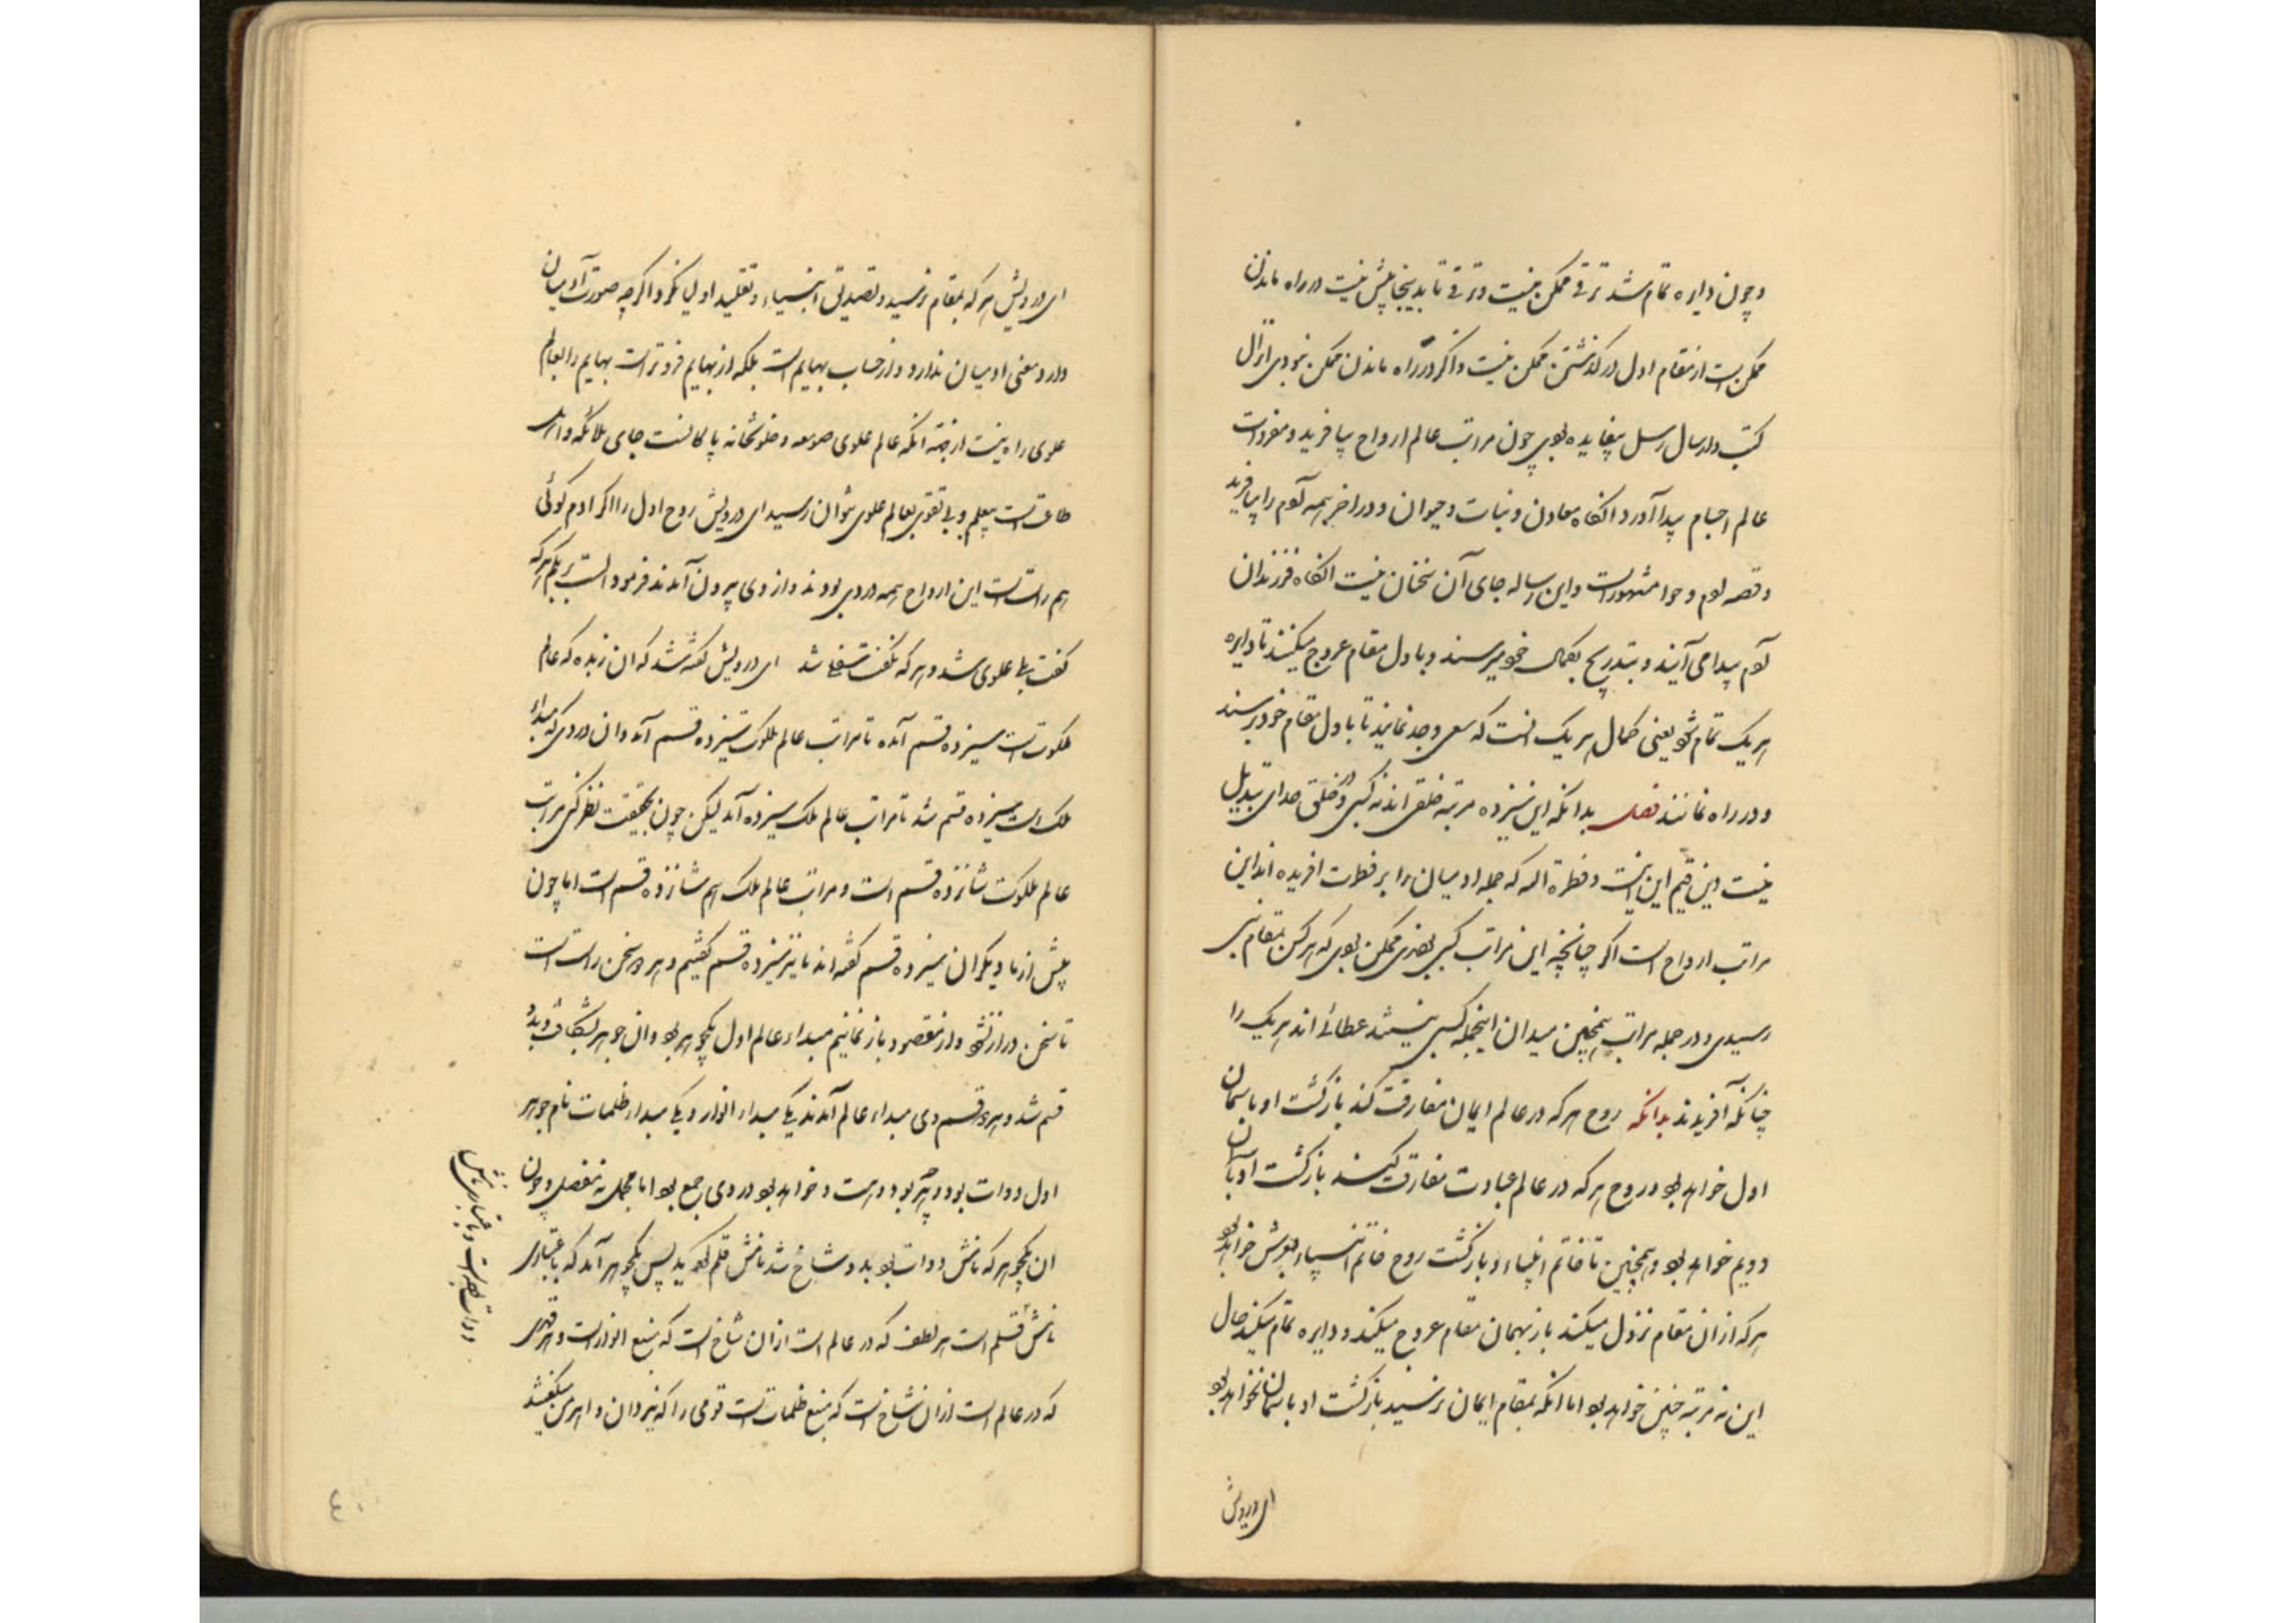 و چون دایره تمام شد ترقی ممکن نیست و ترقی تا بدینجا بیش نیست در راه ماندن
ممکن است از مقام اول درگذشتن ممکن نیست و اگر در راه ماندن ممکن نبودی انزال
کتب و ارسال رسل بیفایده بودی چون مراتب عالم ارواح بیافرید و مفردات
عالم اجسام پیدا آورد انکاه معادن و نبات و حیوان و در اخر همه آدم را بیافرید
و قصه ادم و حوا مشهور است و این رساله جای آن سخنان نیست انکاه فرزندان
آدم پیدا می آیند و بتدریج بکمال خود میرسند و باول مقام عروج میکنند تا دایره
هر یک تمام شود یعنی کمال هر یک انست که سعی و جد نمایند تا باول مقام خود برسند
و در راه نمانند فصل بدانکه این سیزده مرتبه خلقی اند نه کسبی و در خلق خدای تبدیل
نیست دین قیم این است و فطرة الله که جمله ادمیان را بر فطرت افریده اند این
مراتب ارواح است اگر چنانچه این مراتب کسبی بودی ممکن بودی که هر کس بمقام نبی
رسیدی و در جمله مراتب همچنین میدان اینجمله کسبی نیستند عطائی اند هر یک را
چنانکه آفریدند بدانکه روح هر که در عالم ایمان مفارقت کند بازگشت او باسمان
اول خواهد بود و روح هر که در عالم عبادت مفارقت کند بازگشت او بآسمان
دویم خواهد بود و همچنین تا خاتم انبیاء و بازگشت روح خاتم انبیاء بعرش خواهد بود
هر که از ان مقام نزول میکند باز بهمان مقام عروج میکند و دایره تمام میکند حال
این نه مرتبه چنین خواهد بود اما انکه بمقام ایمان نرسید بازگشت او باسمان نخواهد بود
ای درویش
ای درویش هر که بمقام نرسید و تصدیق انبیاء و تقلید اولیا نکرد اگر چه صورت آدمیان
دارد و معنی ادمیان ندارد و از حساب بهایم است بلکه از بهایم فروتر است بهایم را بعالم
علوی راه نیست از جهة انکه عالم علوی صومعه و خلوتخانه پاکانست جای ملائکه و اهل
طاعت است بیعلم و بی تقوی بعالم علوی نتوان رسید ای درویش روح اول را اگر ادم گوئی
هم راست است این ارواح همه در وی بودند و از وی بیرون آمدند فرمود الست بربکم هر که
گفت بلی علوی شد و هر که نگفت سفلی شد ای درویش گفته شد که ان زبده که عالم
ملکوت است سیزده قسم آمده تا مراتب عالم ملکوت سیزده قسم آمد و ان دردی که مبداء
ملک است سیزده قسم شد تا مراتب عالم ملک سیزده آمد لیکن چون بحقیقت نظر کنی مراتب
عالم ملکوت شانزده قسم است و مراتب عالم ملک هم شانزده قسم است اما چون
پیش از ما دیگران سیزده قسم گفته اند ما نیز سیزده قسم گفتیم و هر دو سخن راست است
تا سخن دراز نشود و از مقصود باز نمانیم مبداء عالم اول یکجوهر بود و ان جوهر بشکافت و بدو
قسم شد و هر دو قسم وی مبداء عالم آمدند یکی مبداء انوار و یکی مبداء ظلمات نام جوهر
اول دوات بود و هر چه بود و هست و خواهد بود در وی جمع بود اما مجمل نه مفصل و چون
ان یکجوهر که نامش دوات بود بدو شاخ شد نامش قلم گردید پس یکجوهر آمد که باعتباری
نامش قلم است هر لطف که در عالم است از ان شاخ است که منبع انوار است و هر قهری
که در عالم است از ان شاخ است که منبع ظلمات است قومی را که یزدان و اهرمن میگفتند
دوات است و باعتباری نامش
۴۰